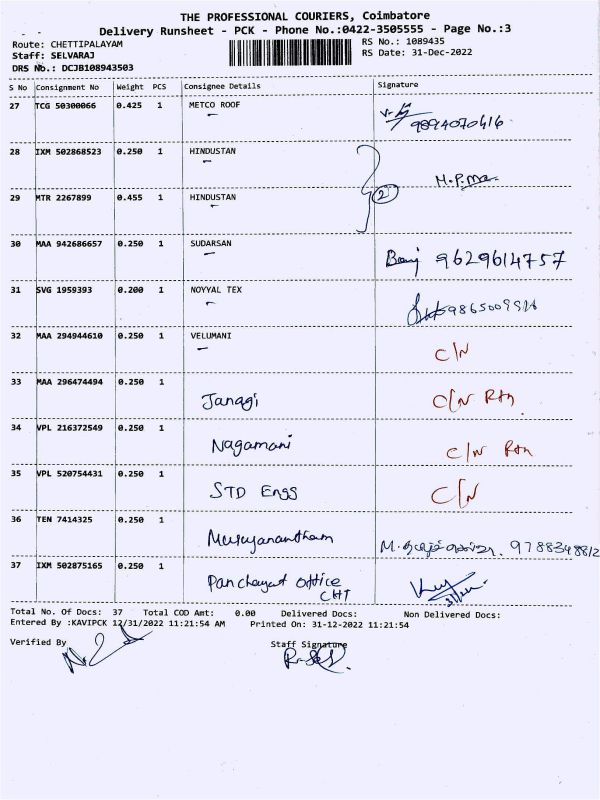 THE PROFESSIONAL COURIERS, Coimbatore
Delivery Runsheet - PCK - Phone No.:0422-3505555 - Page No.:3
Route: CHETTIPALAYAM RS No.: 1089435
Staff: SELVARAJ RS Date: 31-Dec-2022
DRS No.: DCJB108943503
S No Consignment No Weight PCS Consignee Details Signature
27 TCG 50300066 0.425 1 METCO ROOF
9894070616
28 IXM 502868523 0.250 1 HINDUSTAN
M.P.Ma.
29 MTR 2267899 0.455 1 HINDUSTAN 2
30 MAA 942686657 0.250 1 SUDARSAN 9629614757
31 SVG 1959393 0.200 1 NOYYAL TEX
32 MAA 294944610 0.250 1 VELUMANI
C/N
33 MAA 296474494 0.250 1
Janagi C/N Rtn
34 VPL 216372549 0.250 1
Nagamani C/N Rtn
35 VPL 520754431 0.250 1
STD Engg C/N
36 TEN 7414325 0.250 1
Muruganantham M. 9788348812
37 IXM 502875165 0.250 1
Panchayat Office
CHT
Total No. Of Docs: 37 Total COD Amt: 0.00 Delivered Docs: Non Delivered Docs:
Entered By :KAVIPCK 12/31/2022 11:21:54 AM Printed On: 31-12-2022 11:21:54
Verified By Staff Signature